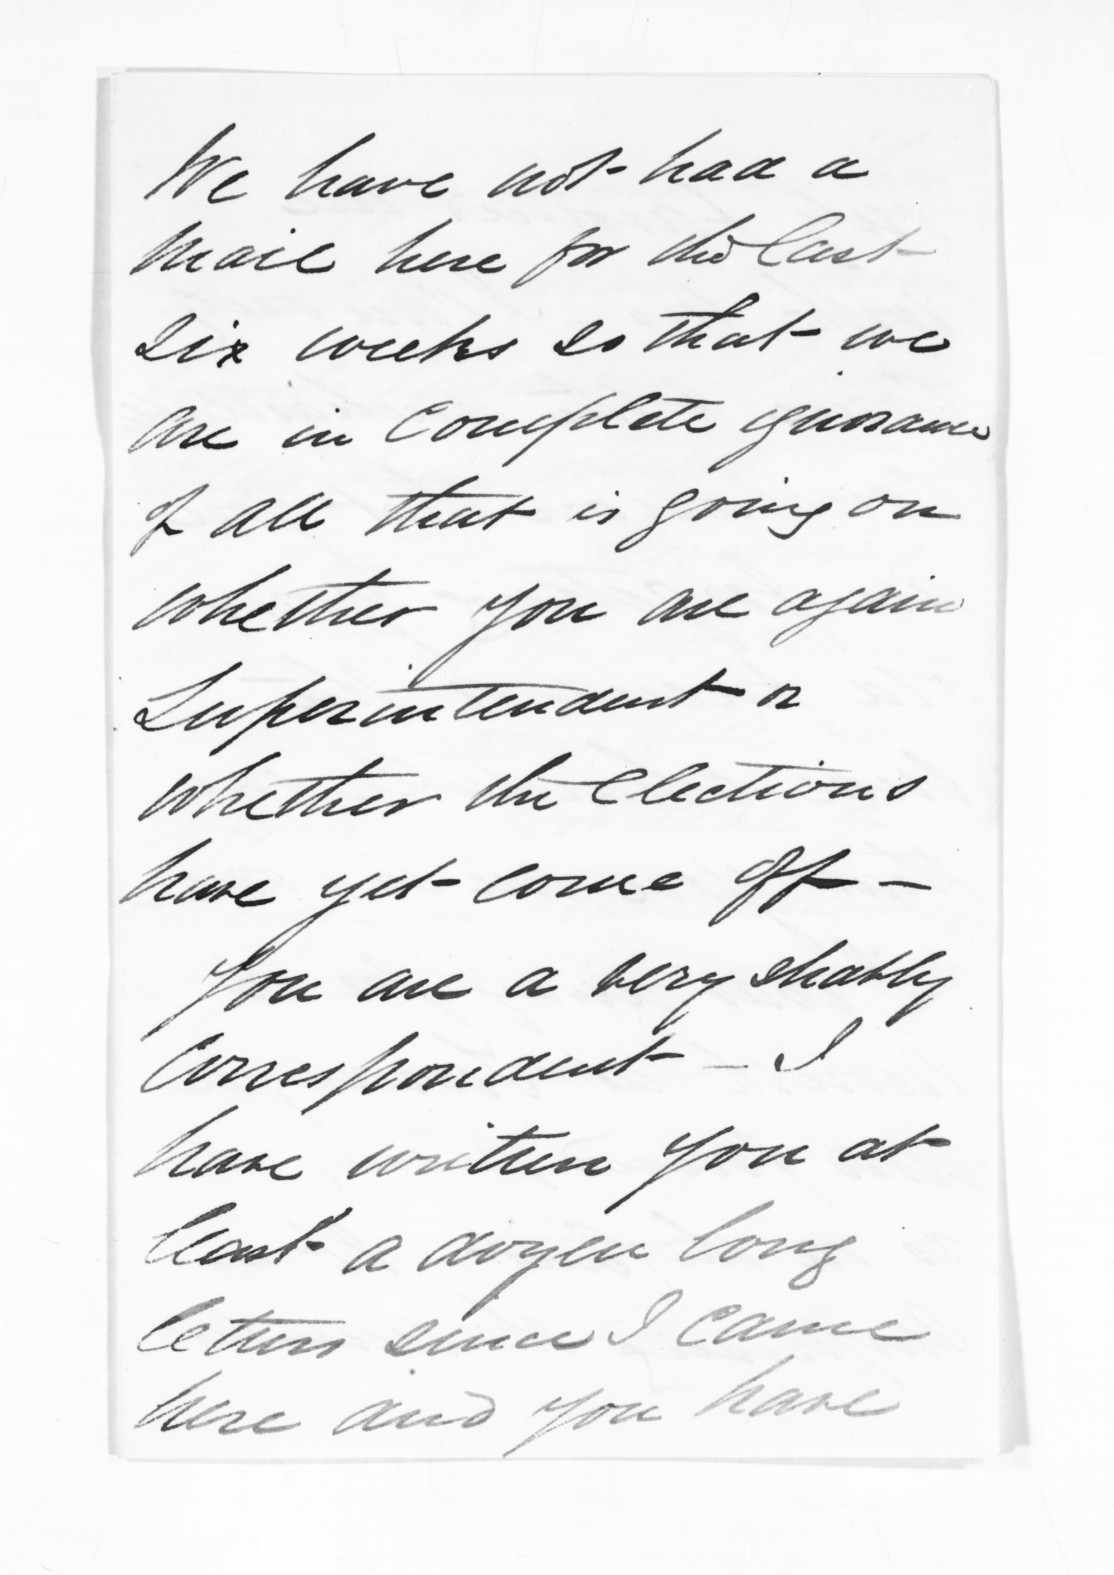 We have not had a
mail here for the last
six weeks so that we
are in complete ignorance
of all that is going on
whether you are again
Superintendent or
whether the elections
have yet come off –
You are a very shabby
correspondent – I
have written you at
least a dozen long
letters since I came
here and you have